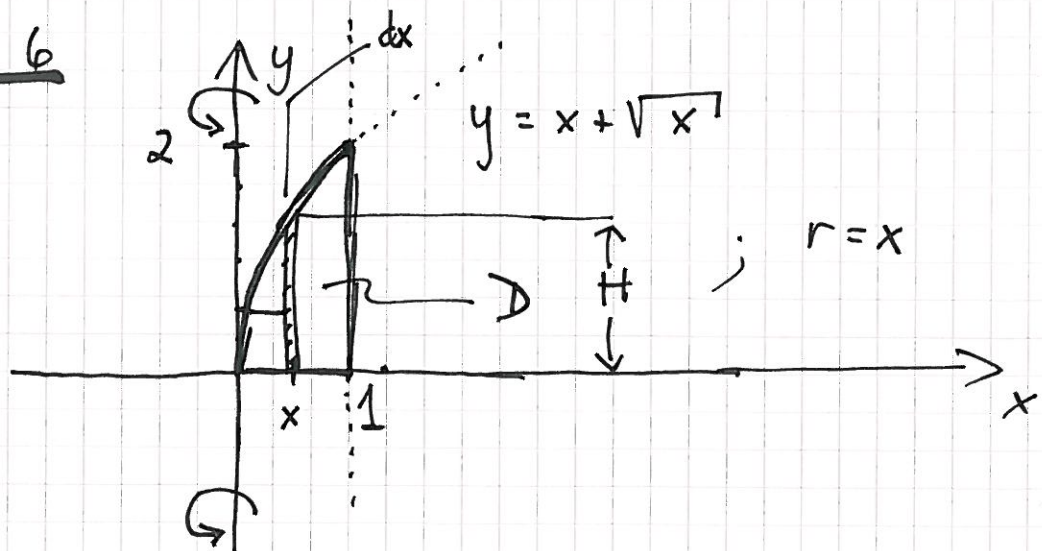 6
y
dx
2
y = x + √x
D
H
; r = x
x
1
x